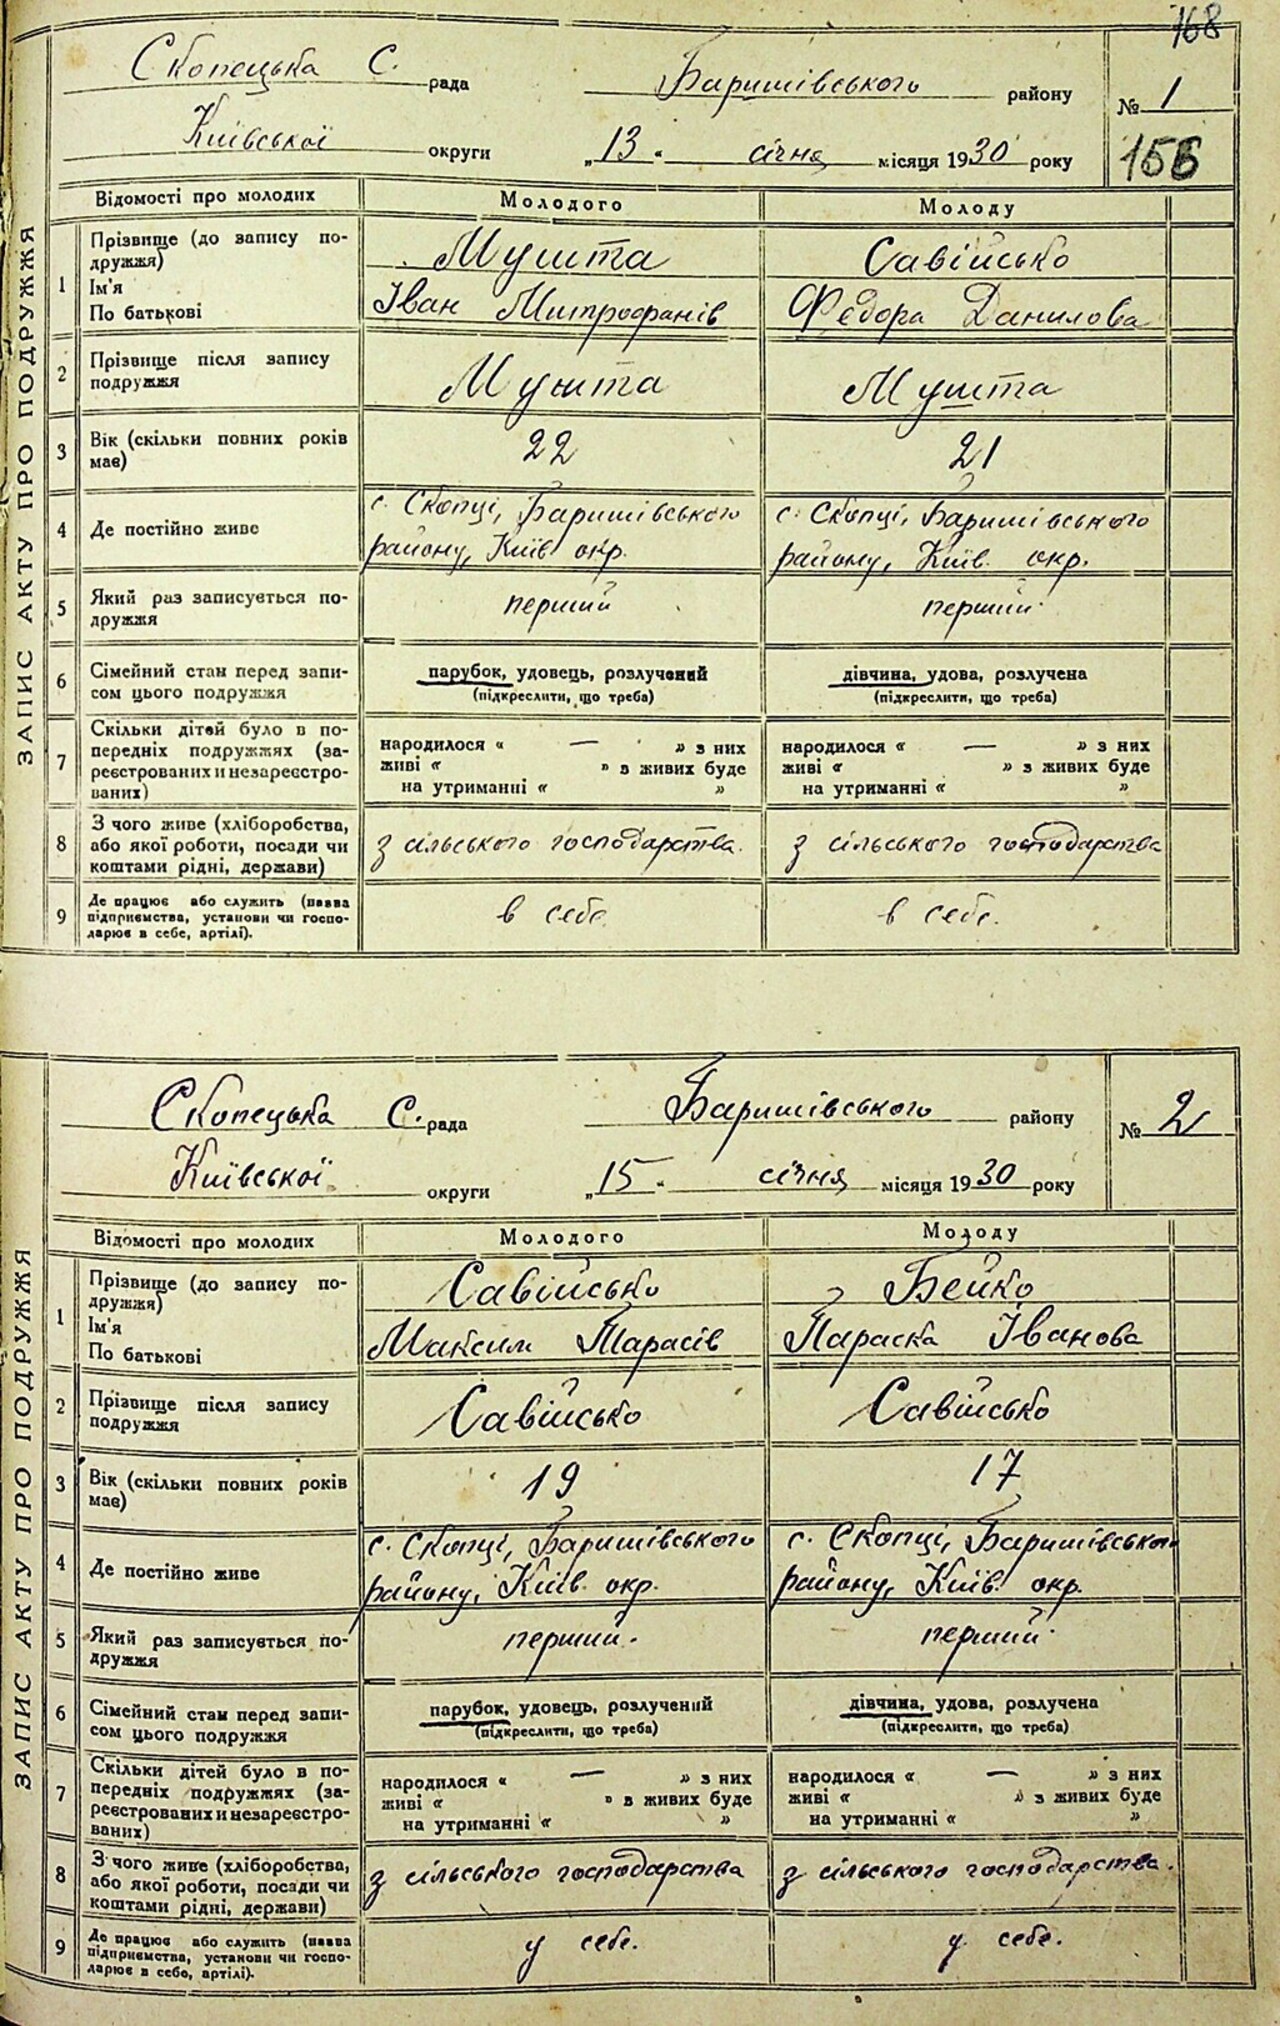 168
Скопецька С. рада Баришівського району № 1
Київської округи „13“ січня місяця 1930 року
156
ЗАПИС АКТУ ПРО ПОДРУЖЖЯ
Відомості про молодих Молодого Молоду
1 Прізвище (до запису по-
дружжя) Мушта Савійсько
Ім'я
По батькові Іван Митрофанів Федора Данилова
2 Прізвище після запису
подружжя Мушта Мушта
3 Вік (скільки повних років
має) 22 21
4 Де постійно живе с. Скопці, Баришівського с. Скопці, Баришівського
району, Київ. окр. району, Київ. окр.
5 Який раз записується по-
дружжя перший перший
6 Сімейний стан перед запи- парубок, удовець, розлучений дівчина, удова, розлучена
сом цього подружжя (підкреслити, що треба) (підкреслити, що треба)
7 Скільки дітей було в по-
передніх подружжях (за- народилося « — » з них народилося « — » з них
реєстрованих и незареєстро- живі « » в живих буде живі « » з живих буде
ваних) на утриманні « » на утриманні « »
8 З чого живе (хліборобства,
або якої роботи, посади чи з сільського господарства. з сільського господарства
коштами рідні, держави)
9 Де працює або служить (назва
підприємства, установи чи госпо- в себе в себе.
дарює в себе, артілі).
Скопецька С. рада Баришівського району № 2
Київської округи „15“ січня місяця 1930 року
ЗАПИС АКТУ ПРО ПОДРУЖЖЯ
Відомості про молодих Молодого Молоду
1 Прізвище (до запису по-
дружжя) Савійсько Бейко
Ім'я
По батькові Максим Тарасів Параска Іванова
2 Прізвище після запису
подружжя Савійсько Савійсько
3 Вік (скільки повних років
має) 19 17
4 Де постійно живе с. Скопці, Баришівського с. Скопці, Баришівського
району, Київ. окр. району, Київ. окр.
5 Який раз записується по-
дружжя перший. перший.
6 Сімейний стан перед запи- парубок, удовець, розлучений дівчина, удова, розлучена
сом цього подружжя (підкреслити, що треба) (підкреслити, що треба)
7 Скільки дітей було в по-
передніх подружжях (за- народилося « — » з них народилося « — » з них
реєстрованих и незареєстро- живі « » в живих буде живі « » з живих буде
ваних) на утриманні « » на утриманні « »
8 З чого живе (хліборобства,
або якої роботи, посади чи з сільського господарства з сільського господарства.
коштами рідні, держави)
9 Де працює або служить (назва
підприємства, установи чи госпо- у себе. у себе.
дарює в себе, артілі).